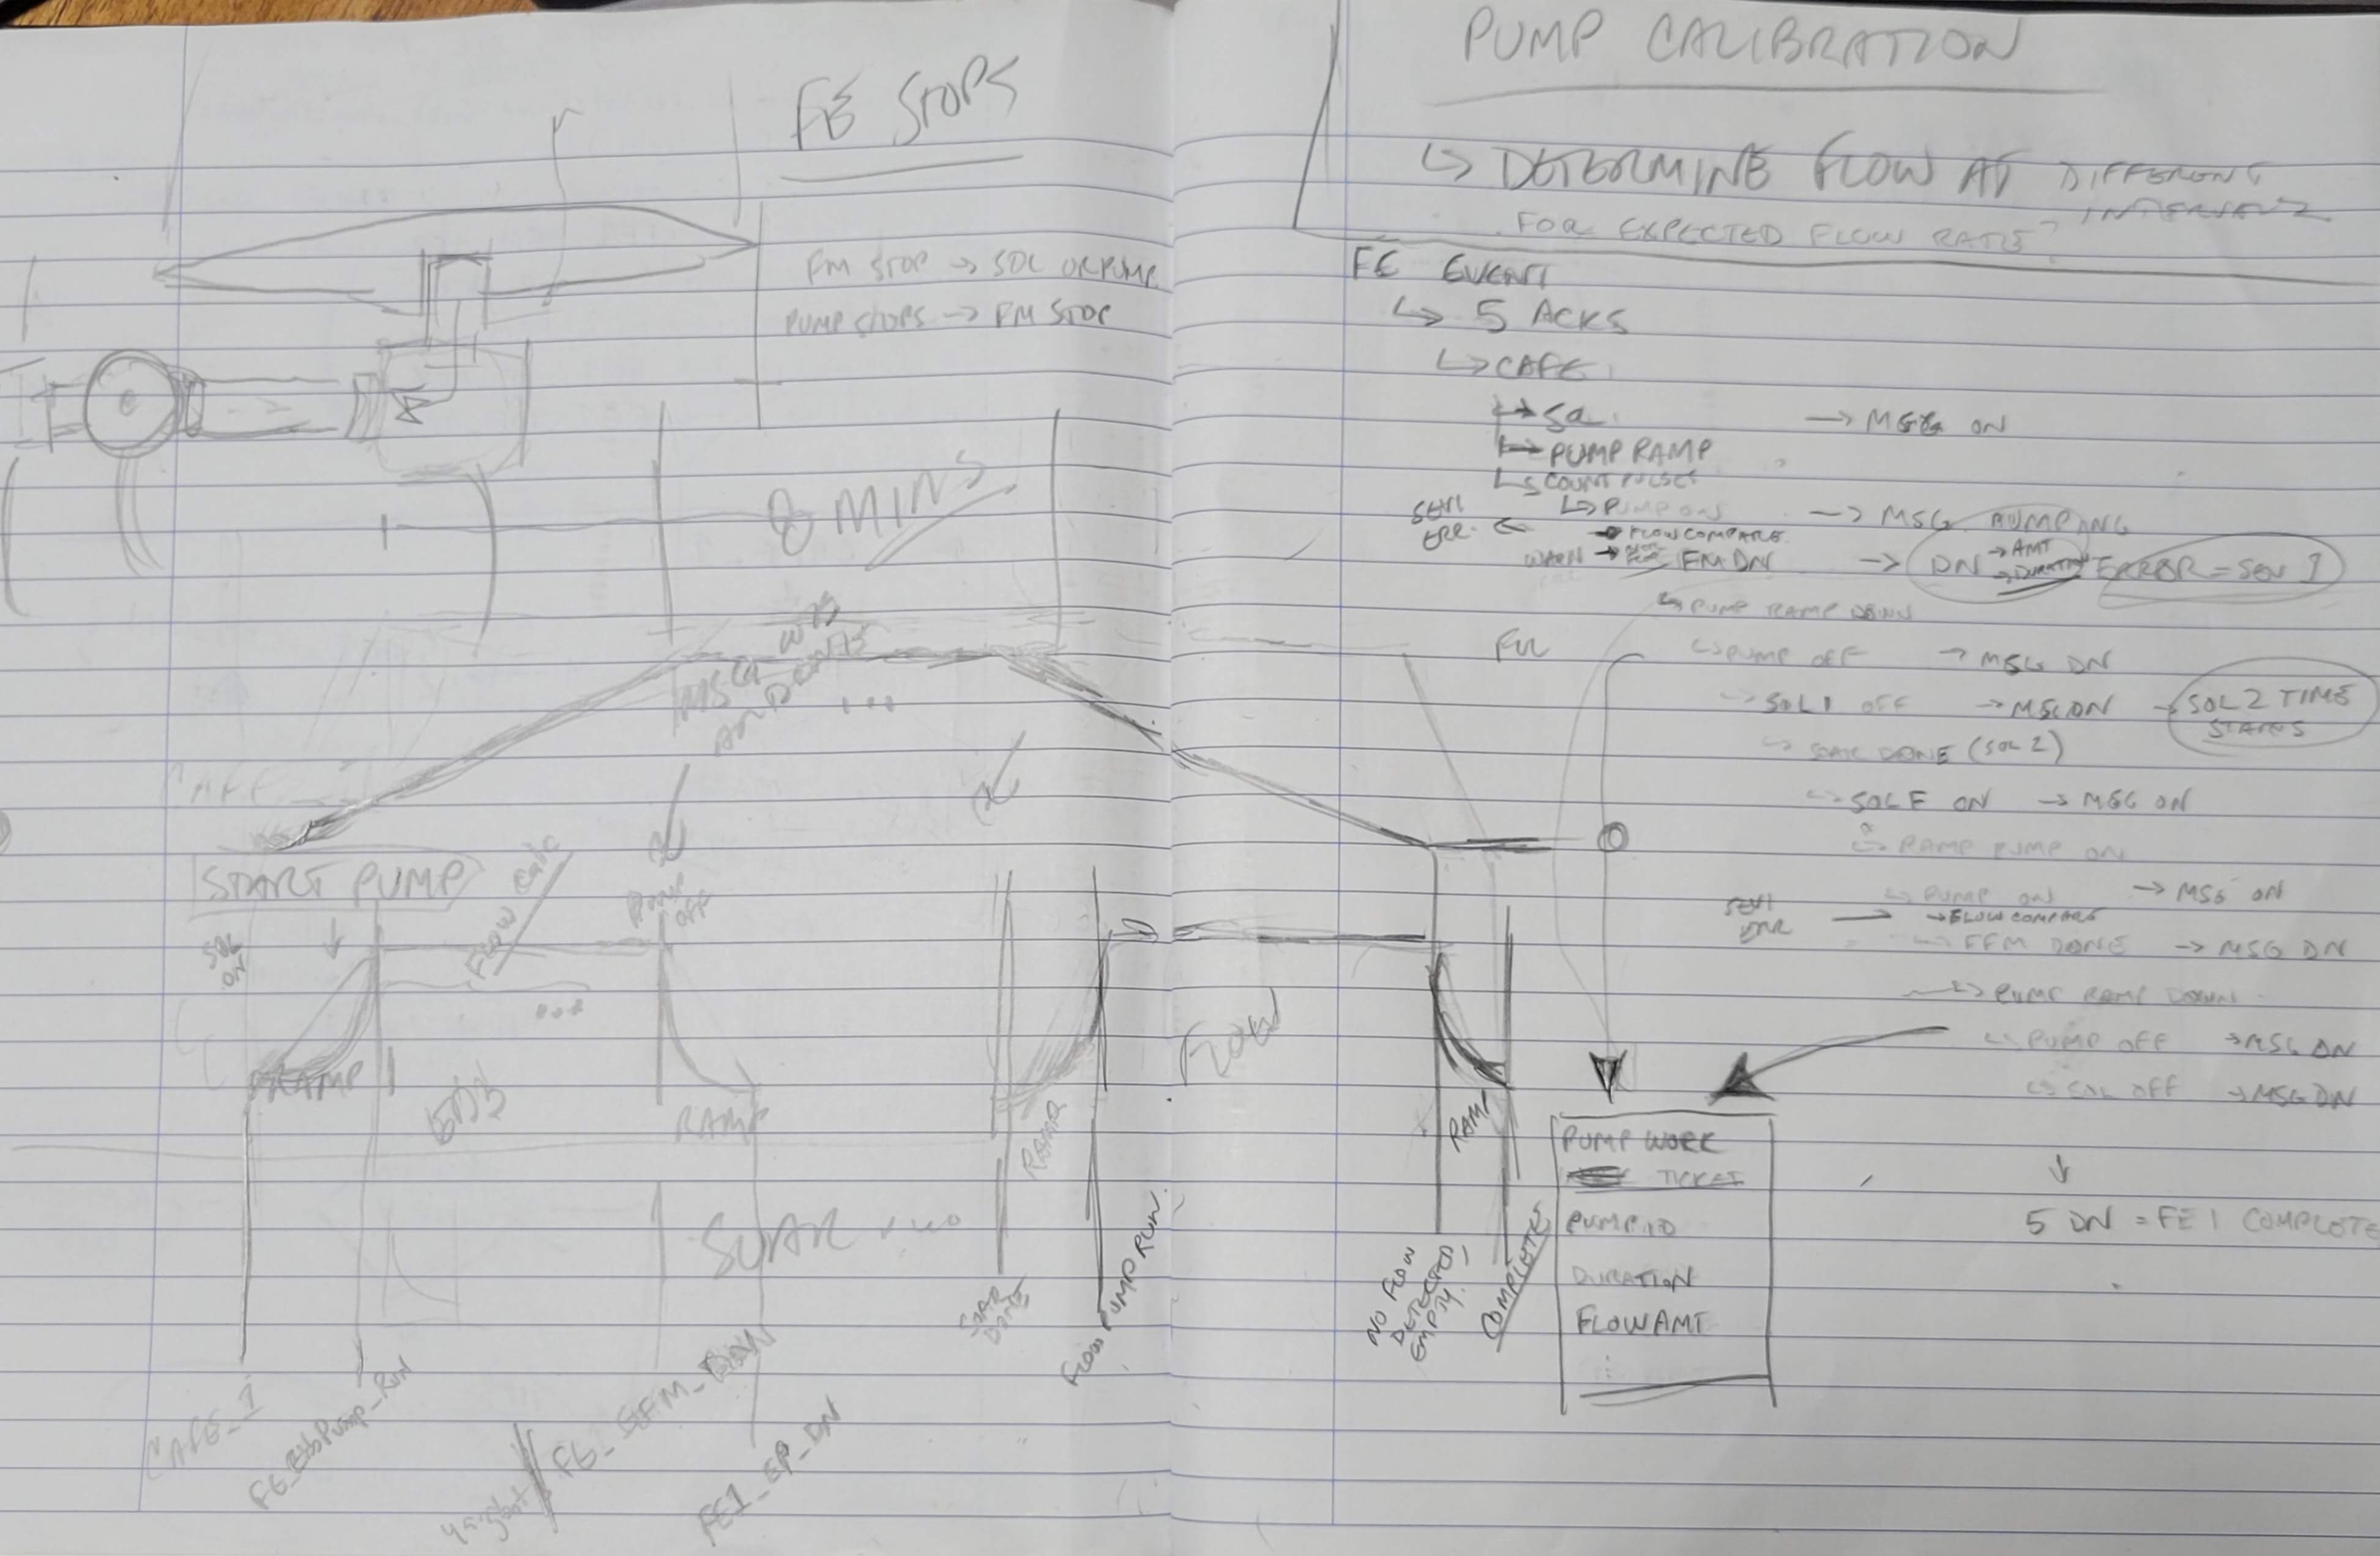 FE STOPS
FM STOP → SOL OR PUMP
PUMP STOPS → FM STOP
8 MINS
MSG
...
START PUMP
SOL ON
FLOW
PUMP OFF
...
RAMP
EBB
RAMP
SOAK
SOAK DONE
RAMP
FLOOD PUMP RUN
FLOW
CAFE_1
FE_EbbPump_Run
FE1_EP_DN
PUMP CALIBRATION
↳ DETERMINE FLOW AT DIFFERENT INTERVALS
FOR EXPECTED FLOW RATE?
FE EVENT
↳ 5 ACKS
↳ CAFE 1
→ SOL → MSG ON
→ PUMP RAMP
↳ COUNT PULSES
↳ PUMP ON → MSG PUMPING
SEV1 ERR ← → FLOW COMPARE
WARN → FM DN → DN → AMT → DURATION ERROR = SEV 1
↳ PUMP RAMP DOWN
↳ PUMP OFF → MSG DN
→ SOL1 OFF → MSG DN → SOL 2 TIME STARTS
↳ SOAK DONE (SOL 2)
↳ SOL F ON → MSG ON
↳ RAMP PUMP ON
↳ PUMP ON → MSG ON
SEV1 ERR → → FLOW COMPARE
↳ FFM DONE → MSG DN
↳ PUMP RAMP DOWN
↳ PUMP OFF → MSG DN
↳ SOL OFF → MSG DN
↓
5 DN = FE 1 COMPLETE
RAMP
NO FLOW DETECTED / EMPTY.
COMPLETE
PUMP WORK
TICKET
PUMP ID
DURATION
FLOW AMT